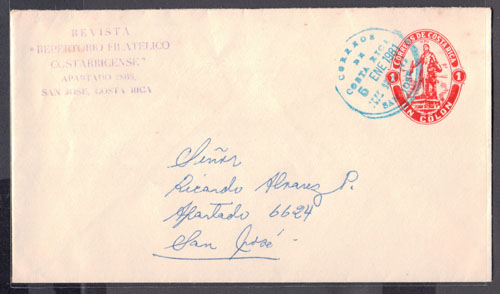 REVISTA
"REPERTORIO FILATELICO
COSTARRICENSE"
APARTADO
SAN JOSE, COSTA RICA
CORREOS
DE
COSTA RICA
5 ENE 1981
SAN JOSE
CORREOS DE COSTA RICA
1 1
UN COLON
Señor
Ricardo Alvarez P.
Apartado 6624
San José